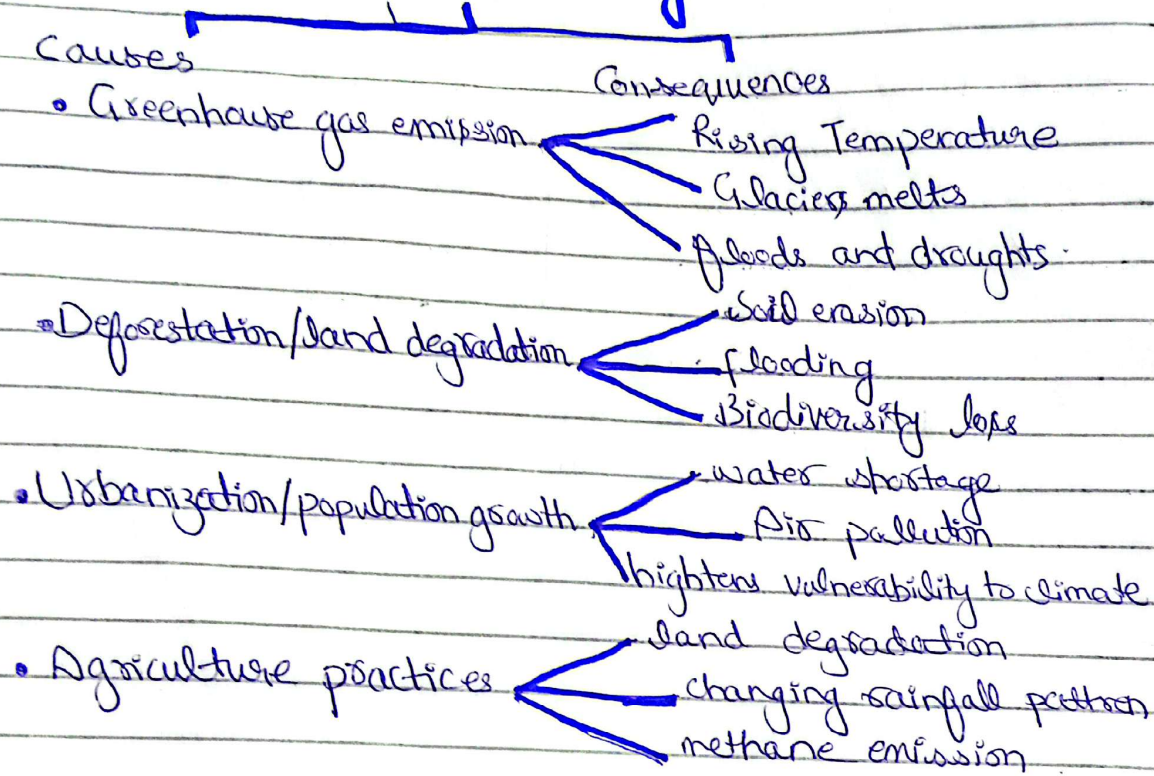 Causes
Consequences
• Greenhouse gas emission
Rising Temperature
Glaciers melts
floods and droughts.
• Deforestation/land degradation
Soil erosion
flooding
Biodiversity loss
• Urbanization/population growth
water shortage
Air pollution
hightens vulnerability to climate
• Agriculture practices
land degradation
changing rainfall pattren
methane emission